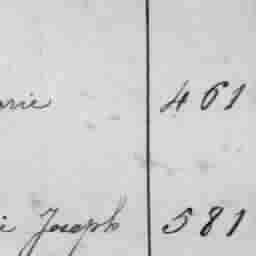 461
Joseph 581